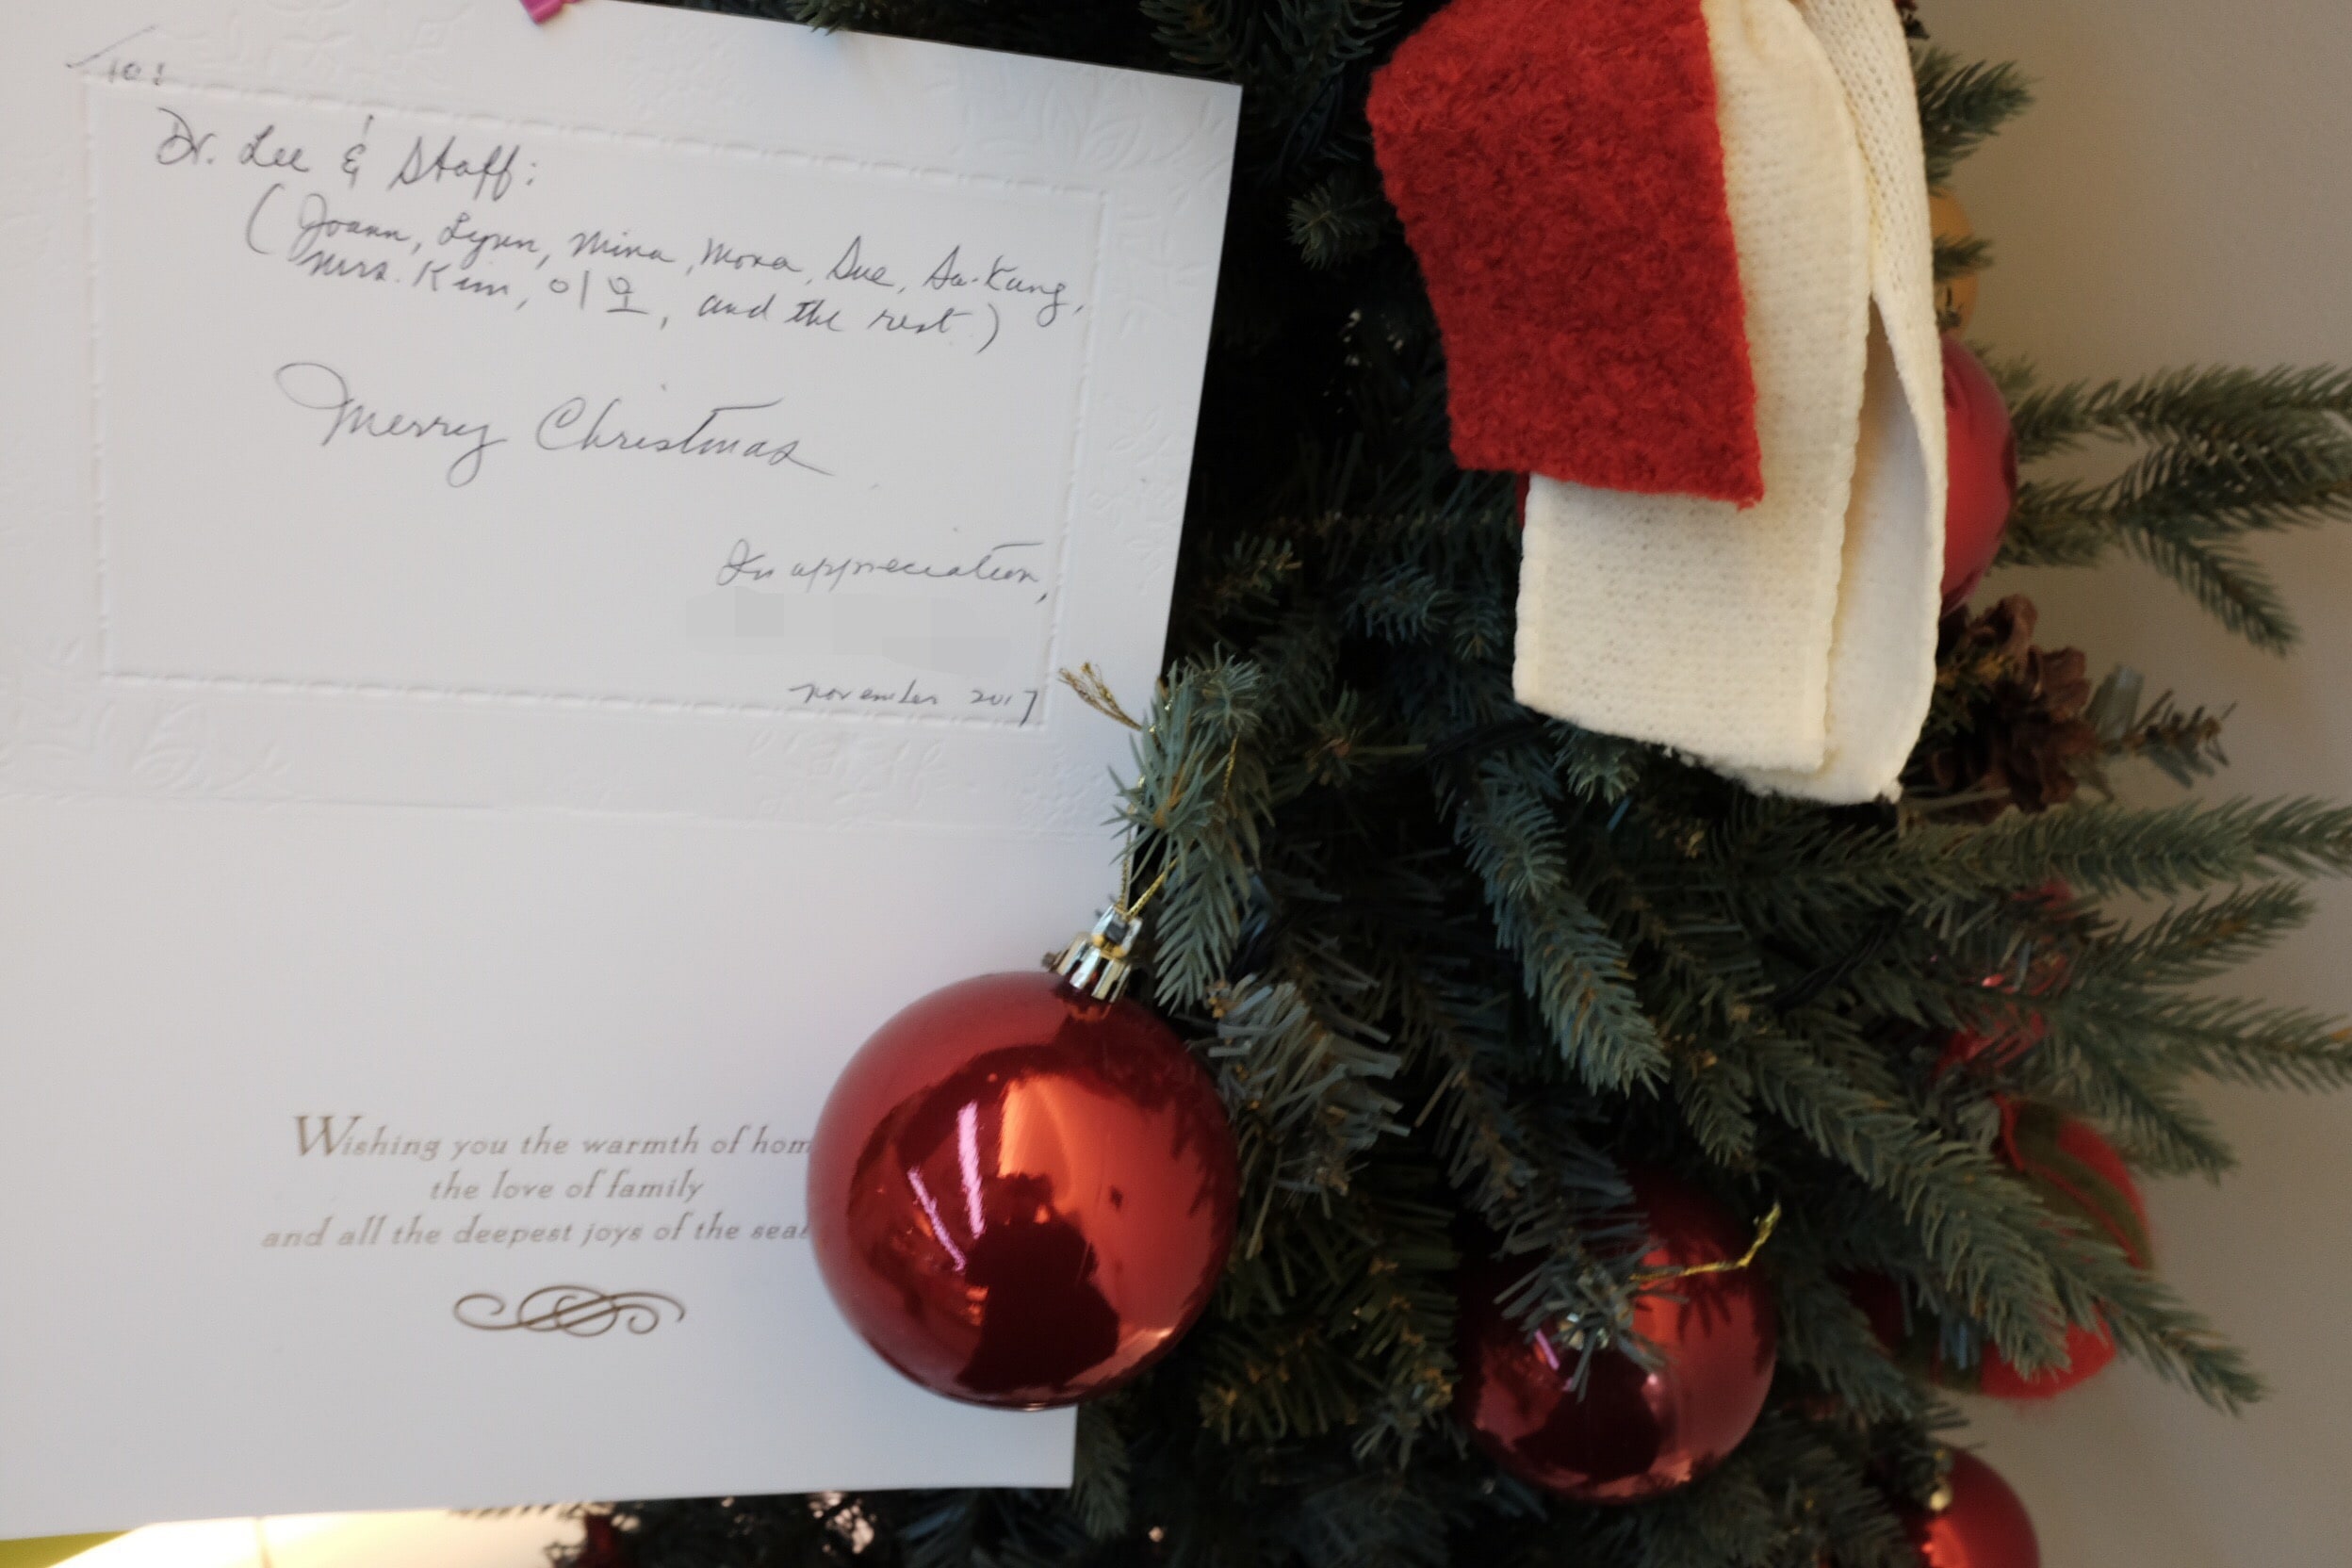 To:
Dr. Lee & Staff:
(Joann, Lynn, Mina, Mona, Sue, Su-Kang,
Mrs. Kim, 이모, and the rest)
Merry Christmas
In appreciation,
november 2017
Wishing you the warmth of hom
the love of family
and all the deepest joys of the sea